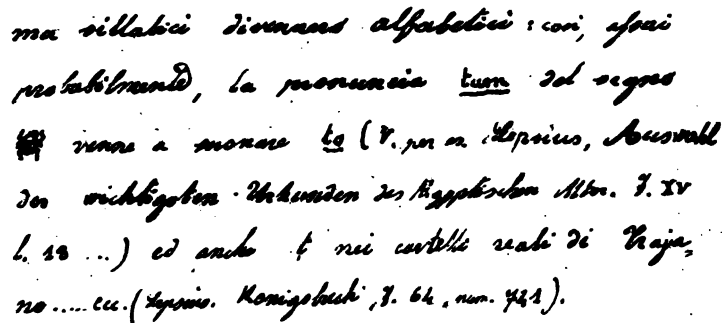 ma sillabici divenuno alfabetici: così, assai
probabilmente, la pronuncia tum del segno
venne a suonare to (V. per es. Lepsius, Auswahl
der wichtigsten Urkunden des Ägyptischen Alter. T. XV
l. 18 ...) ed anche t nei cartelli reali di Traja„
no ..... ecc. (Lepsius. Königsbuch, T. 64, num. 721).